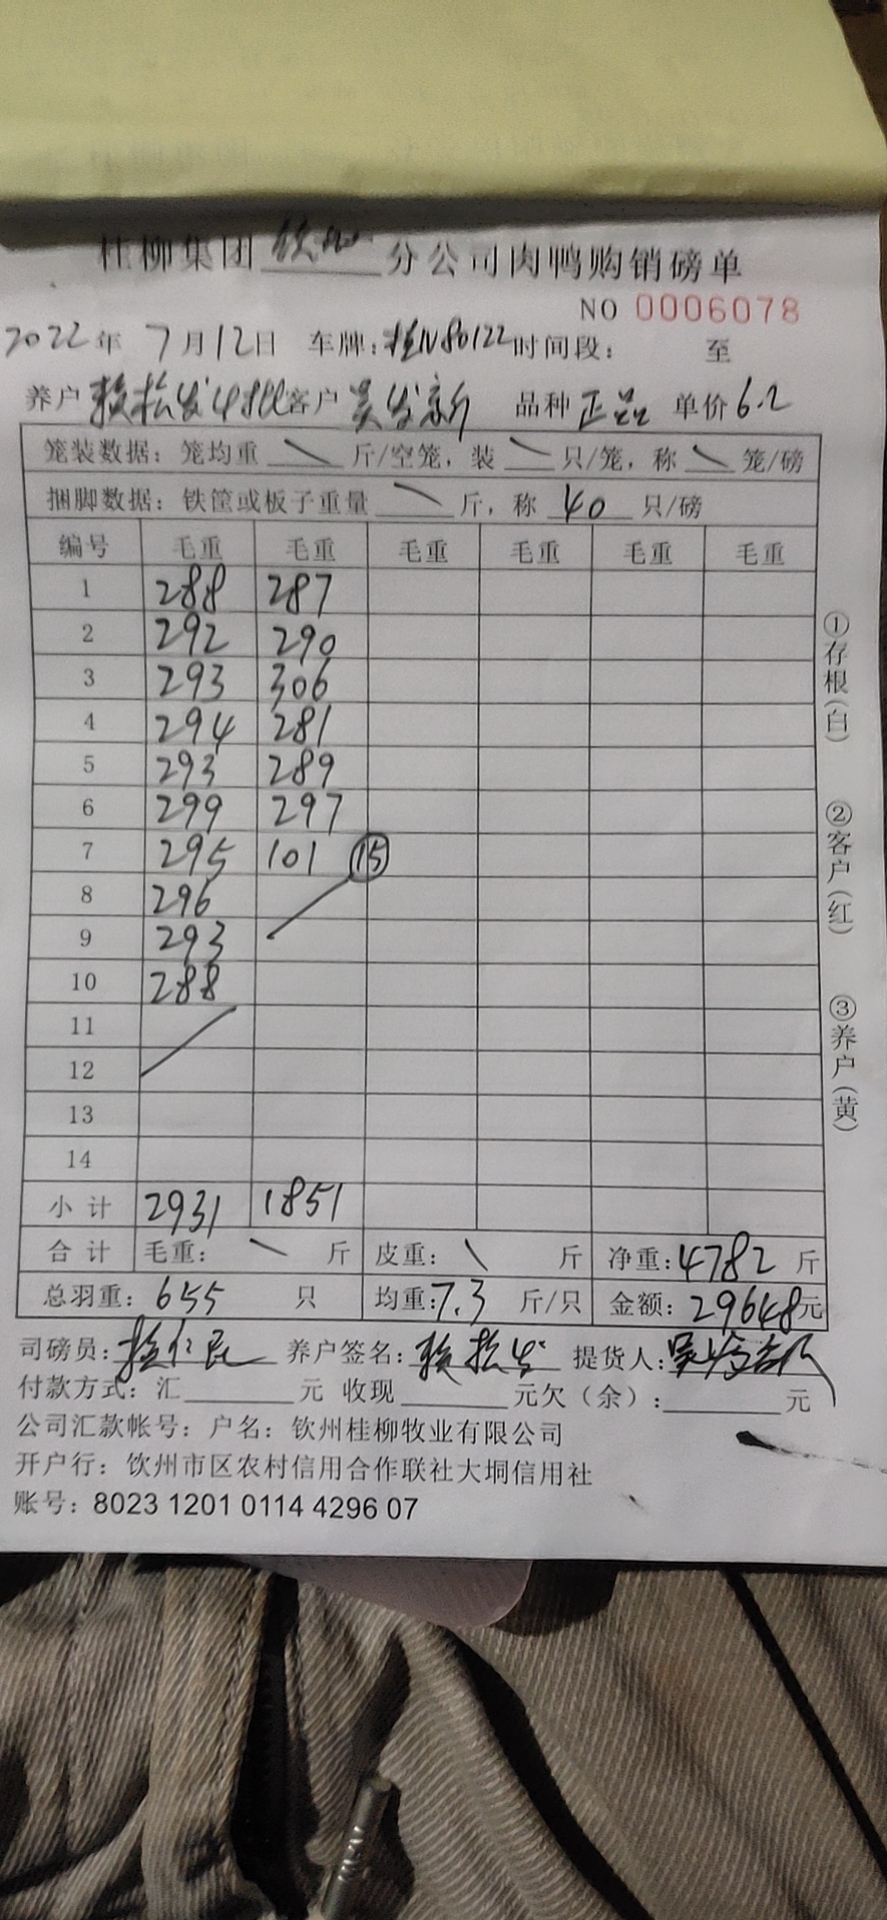 桂柳集团 钦州 分公司肉鸭购销磅单
NO 0006078
2022年 7月12日 车牌:桂N80122 时间段: 至
养户 赖松发 客户 吴发新 品种 正品 单价 6.2
笼装数据: 笼均重 \ 斤/空笼, 装 \ 只/笼, 称 \ 笼/磅
捆脚数据: 铁筐或板子重量 \ 斤, 称 40 只/磅
编号 毛重 毛重 毛重 毛重 毛重 毛重
1 288 287
2 292 290
3 293 306
4 294 281
5 293 289
6 299 297
7 295 101 ⑮
8 296
9 293
10 288
11
12
13
14
小计 2931 1851
合计 毛重: \ 斤 皮重: \ 斤 净重: 4782 斤
总羽重: 655 只 均重: 7.3 斤/只 金额: 29648元
司磅员: 养户签名: 赖松发 提货人:
付款方式: 汇 元 收现 元欠(余): 元
公司汇款帐号: 户名: 钦州桂柳牧业有限公司
开户行: 饮州市区农村信用合作联社大垌信用社
账号: 8023 1201 0114 4296 07
①存根(白) ②客户(红) ③养户(黄)